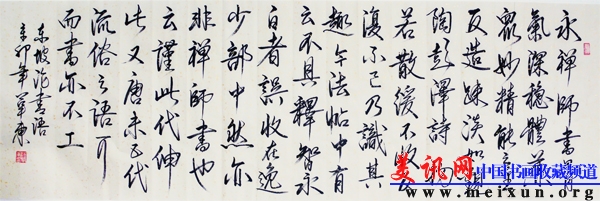 永禅師書骨
氣深穩體兼
衆妙精能之至
反造疎淡如觀
陶彭澤詩初
若散緩不收反
復不已乃識其
趣今法帖中有
云不具釋智永
白者誤收在逸
少部中然亦
非禅師書也
云謹此代伸
此又唐末五代
流俗之語耳
而書亦不工
東坡評書語
辛卯年軍康
美讯网
中国书画收藏频道
www.meixun.org